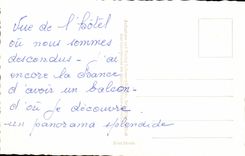 Vue de l'hôtel
où nous sommes
descendus - j'ai
encore la chance
d'avoir un balcon -
d'où je découvre
un panorama splendide